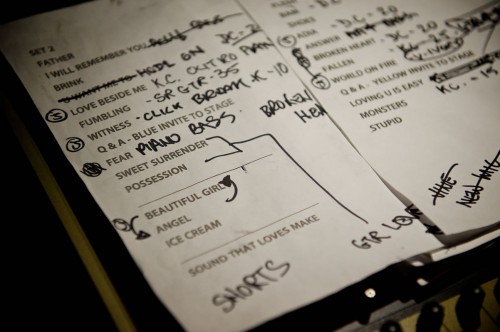 SET 2
FATHER
I WILL REMEMBER YOU DC-2
BRINK HOLD ON
LOVE BESIDE ME K.C. OUTRO
FUMBLING - SRGTR-35
WITNESS - CLICK BROOM K-10
Q & A - BLUE INVITE TO STAGE
FEAR PIANO BASS.
SWEET SURRENDER
POSSESSION
BEAUTIFUL GIRL
ANGEL
ICE CREAM
SOUND THAT LOVES MAKE
SHORTS
BROKEN
D.C. - 20
ADIA
ANSWER
BROKEN HEART DC - 20
FALLEN
WORLD ON FIRE
Q & A - YELLOW INVITE TO STAGE
LOVING U IS EASY
MONSTERS KC. - 15
STUPID
GTR LOVE